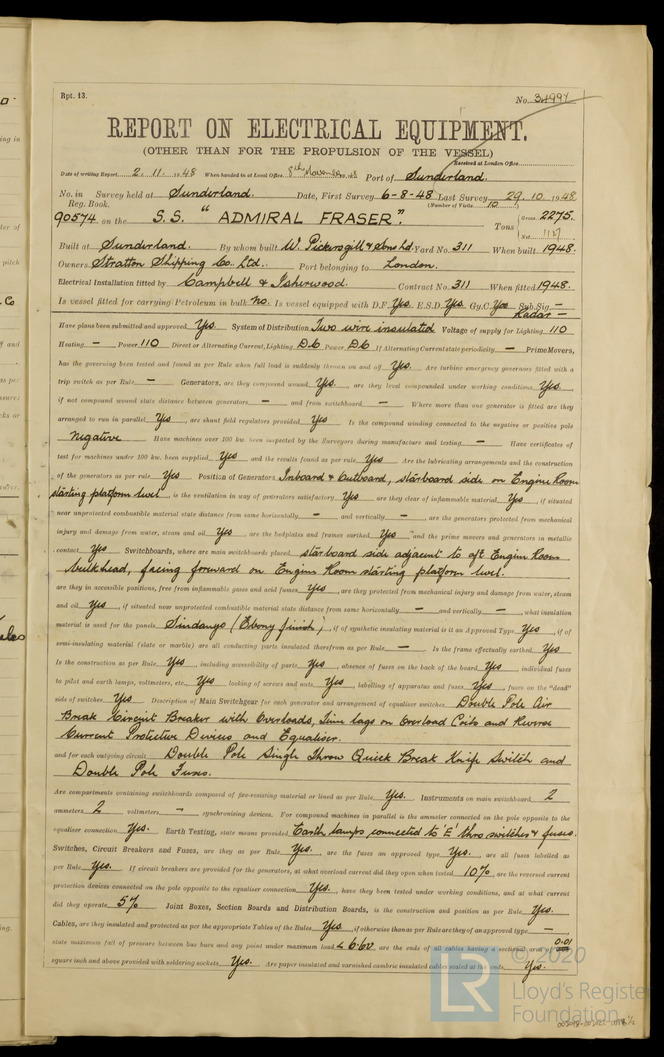 Rpt. 13.
No. 34994
REPORT ON ELECTRICAL EQUIPMENT.
(OTHER THAN FOR THE PROPULSION OF THE VESSEL)
Received at London Office
Date of writing Report 2. 11. 1948 When handed in at Local Office 8th November 1948 Port of Sunderland.
No. in Survey held at Sunderland. Date, First Survey 6-8-48 Last Survey 29.10.1948
Reg. Book. (Number of Visits 10)
90574 on the S.S. "ADMIRAL FRASER". Tons {Gross 2275.
Net 1127
Built at Sunderland. By whom built W. Pickersgill & Sons Ld. Yard No. 311 When built 1948.
Owners Stratton Shipping Co. Ltd. Port belonging to London.
Electrical Installation fitted by Campbell & Isherwood. Contract No. 311 When fitted 1948.
Is vessel fitted for carrying Petroleum in bulk No. Is vessel equipped with D.F. Yes E.S.D. Yes Gy.C. Yes Sub.Sig. —
Radar —
Have plans been submitted and approved Yes. System of Distribution Two wire insulated Voltage of supply for Lighting 110
Heating — Power 110 Direct or Alternating Current, Lighting D.C Power D.C If Alternating Current state periodicity — Prime Movers,
has the governing been tested and found as per Rule when full load is suddenly thrown on and off Yes. Are turbine emergency governors fitted with a
trip switch as per Rule — Generators, are they compound wound Yes. are they level compounded under working conditions Yes.
if not compound wound state distance between generators — and from switchboard — Where more than one generator is fitted are they
arranged to run in parallel Yes, are shunt field regulators provided Yes Is the compound winding connected to the negative or positive pole
Negative Have machines over 100 kw. been inspected by the Surveyors during manufacture and testing — Have certificates of
test for machines under 100 kw. been supplied Yes and the results found as per rule Yes Are the lubricating arrangements and the construction
of the generators as per rule Yes Position of Generators Inboard & Outboard, starboard side on Engine Room
starting platform level, is the ventilation in way of generators satisfactory Yes are they clear of inflammable material Yes, if situated
near unprotected combustible material state distance from same horizontally — and vertically —, are the generators protected from mechanical
injury and damage from water, steam and oil Yes are the bedplates and frames earthed Yes and the prime movers and generators in metallic
contact Yes Switchboards, where are main switchboards placed starboard side adjacent to aft Engine Room
bulkhead, facing forward on Engine Room starting platform level.
are they in accessible positions, free from inflammable gases and acid fumes Yes, are they protected from mechanical injury and damage from water, steam
and oil Yes, if situated near unprotected combustible material state distance from same horizontally — and vertically —, what insulation
material is used for the panels Sindanyo (Ebony finish), if of synthetic insulating material is it an Approved Type Yes, if of
semi-insulating material (slate or marble) are all conducting parts insulated therefrom as per Rule — Is the frame effectually earthed Yes
Is the construction as per Rule Yes, including accessibility of parts Yes, absence of fuses on the back of the board Yes, individual fuses
to pilot and earth lamps, voltmeters, etc. Yes locking of screws and nuts Yes, labelling of apparatus and fuses Yes, fuses on the "dead"
side of switches Yes Description of Main Switchgear for each generator and arrangement of equaliser switches Double Pole Air
Break Circuit Breaker with Overloads, Time lags on Overload Coils and Reverse
Current Protective Devices and Equaliser.
and for each outgoing circuit Double Pole Single Throw Quick Break Knife Switch and
Double Pole Fuses.
Are compartments containing switchboards composed of fire-resisting material or lined as per Rule Yes. Instruments on main switchboard 2
ammeters 2 voltmeters — synchronizing devices. For compound machines in parallel is the ammeter connected on the pole opposite to the
equaliser connection Yes. Earth Testing, state means provided Earth lamps connected to 'E' thro switches & fuses.
Switches, Circuit Breakers and Fuses, are they as per Rule Yes. are the fuses an approved type Yes. are all fuses labelled as
per Rule Yes. If circuit breakers are provided for the generators, at what overload current did they open when tested 10% are the reversed current
protection devices connected on the pole opposite to the equaliser connection Yes., have they been tested under working conditions, and at what current
did they operate 5% Joint Boxes, Section Boards and Distribution Boards, is the construction and position as per Rule Yes.
Cables, are they insulated and protected as per the appropriate Tables of the Rules Yes, if otherwise than as per Rule are they of an approved type —
state maximum fall of pressure between bus bars and any point under maximum load < 6.6v. are the ends of all cables having a sectional area of 0.01
square inch and above provided with soldering sockets Yes. Are paper insulated and varnished cambric insulated cables sealed at the ends Yes.
© 2020
LR
Lloyd's Register
Foundation